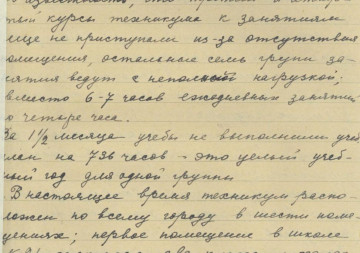 тьи курсы техникума к занятиям
еще не приступали из-за отсутствия
помещения, остальные семь групп за-
нятия ведут с неполной нагрузкой;
вместо 6-7 часов ежедневных занятий
о четыре часа.
За 1½ месяца учебы не выполнили учеб
лан на 736 часов – это целый учеб-
ный год для одной группы
В настоящее время техникум распо-
ложен по всему городу в шести поме-
щениях; первое помещение в школе